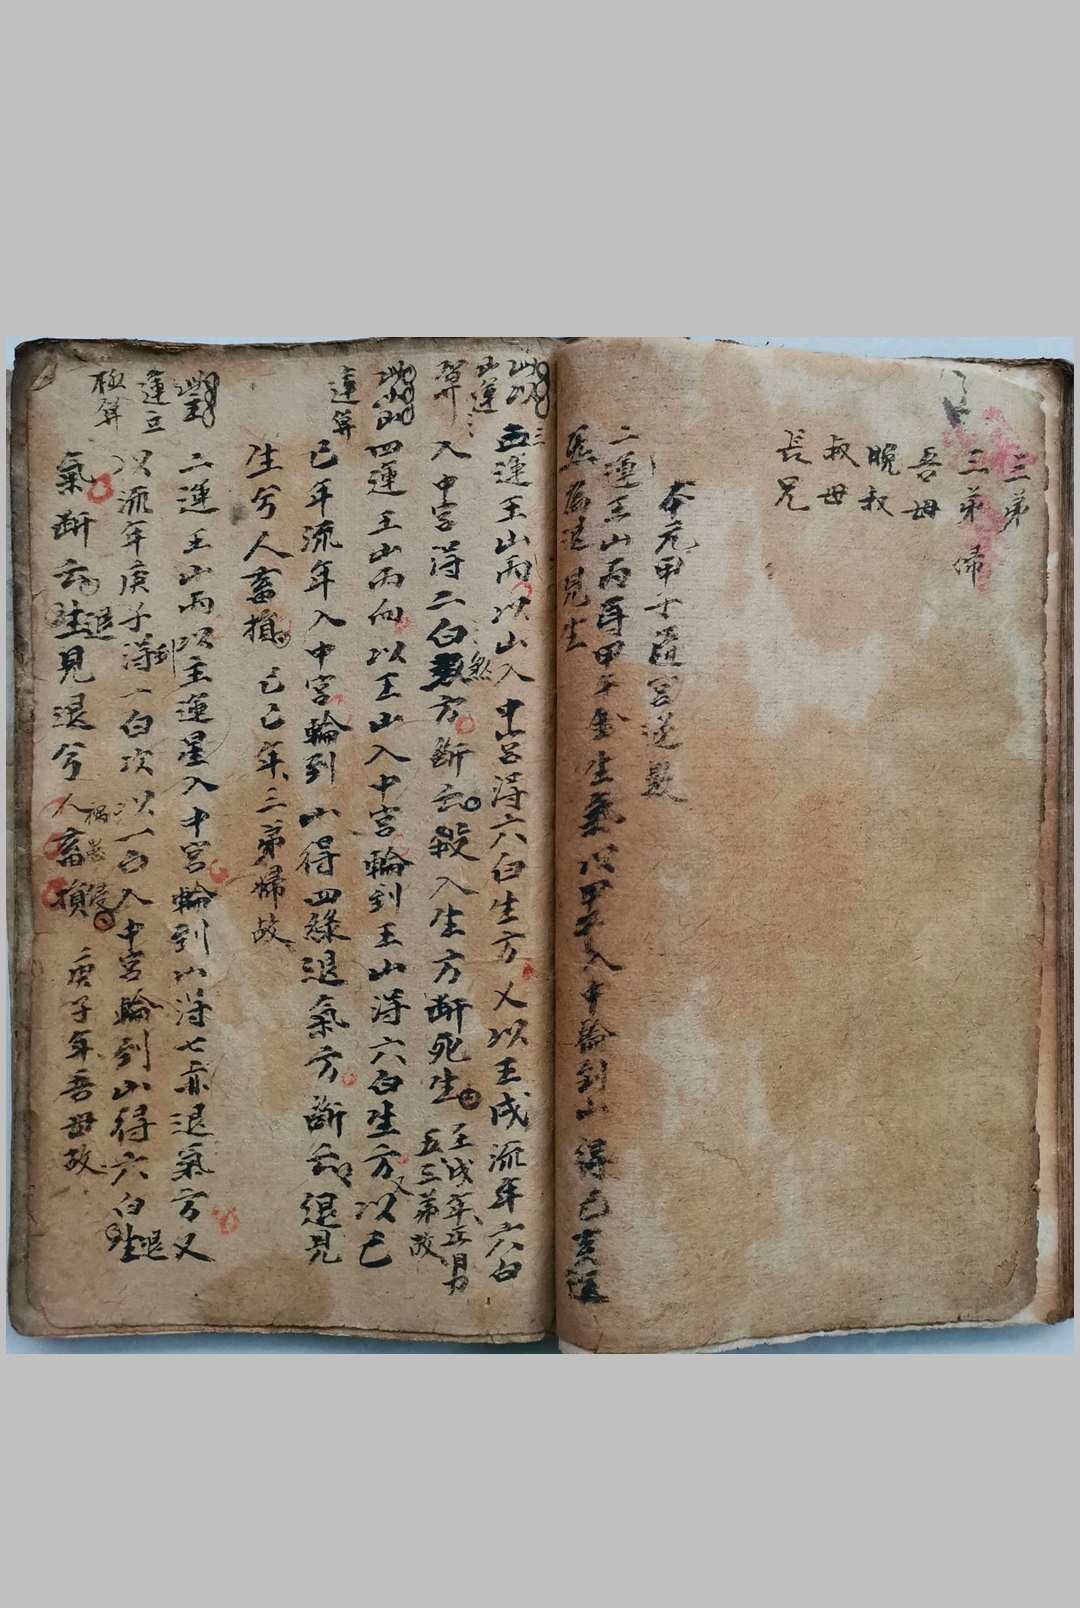 三弟
三弟婦
吾母
晚叔
叔母
長兄
本元甲子 宮逆數
二運壬山丙 甲午年生氣以甲午入中輪到山得己亥退
為退見生
五運壬山丙以山入中宮得六白生方又以壬戌流年六白
入中宮得二白煞方斷云殺入生方斷死生
壬戌年正月
五三弟故
四運壬山丙向以壬山入中宮輪到壬山得六白生方又以己
巳年流年入中宮輪到山得四綠退氣方斷云退見
生兮人畜損 己巳年三弟婦故
二運壬山丙以主運星入中宮輪到山得七赤退氣方又
以流年庚子到得一白次以一白入中宮輪到山得六白生退
氣斷云生退見退兮人畜損 庚子年吾母故
運算
運立
極算